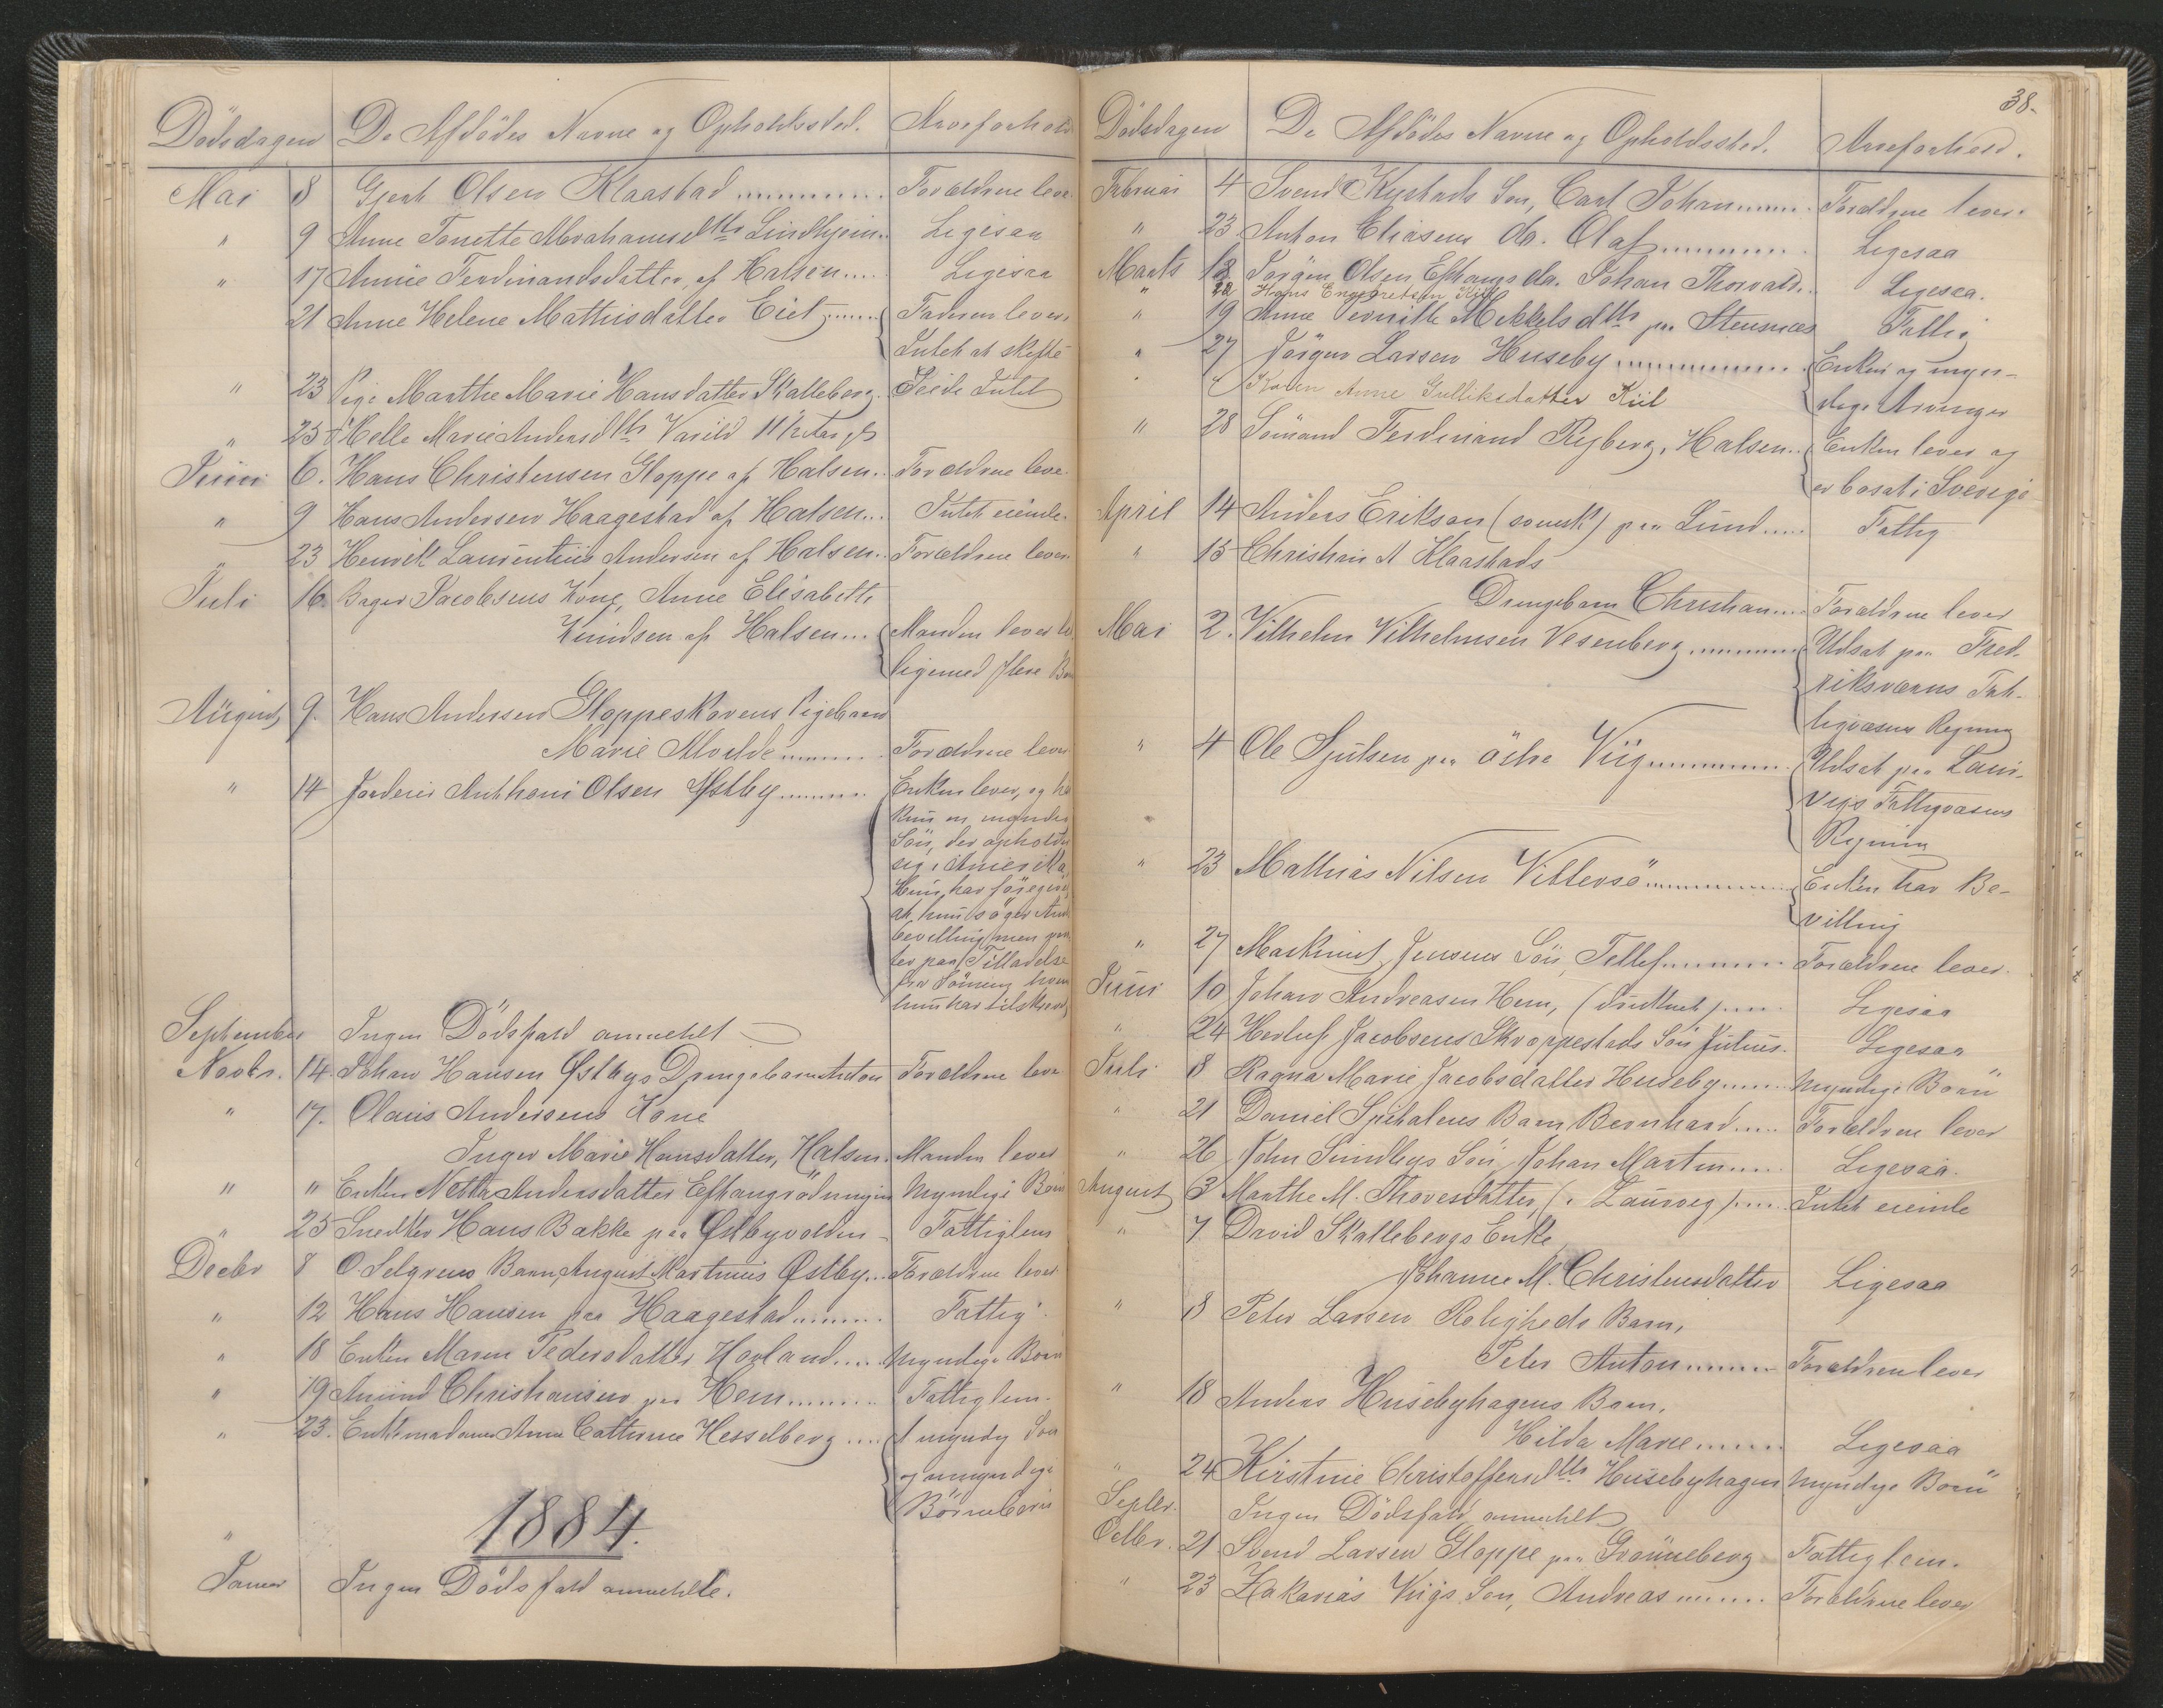 Dödsdagen De Afdödes Navne og Opholdssted. Arveforhold
Mai 8 Gjert Olsen Klaastad ............ Forældrene leve
" 9 Anne Tonette Abrahamsdttr Lindhjem.. Ligesaa
" 17 Annie Ferdinandsdatter af Halsen..... Ligesaa
21 Anne Helene Mathisdatter Eiet....... Faderen lever,
Intet at skifte
" 23 Pige Marthe Marie Hansdatter Skalleberg. Eiede Intet
" 25 Helle Marie Andersdttr Varild
Juni 6. Hans Christensen Gloppe af Halsen.. Forældrene leve
" 9 Hans Andersen Haagestad af Halsen... Intet eiende.
" 23 Henrik Laurentius Andersen af Halsen.. Forældrene lever
Juli 16. Bager Jacobsens Kone, Anne Elisabeth
Knudsen af Halsen... Manden lever
ligemed flere
August 9. Hans Andersen Gloppeskovens Pigebarn
Marie Alvilde ........ Forældrene lever
" 14 Jordeier Anthoni Olsen Østby........ Enken lever, og
kun en myndig
Sön, der opholder
sig i Amerika
Hun har foregivet
at hun söger
bevilling, men
ter paa Tilladelse
fra Sönnen, hvem
hun har tilskrevet
September Ingen Dödsfald anmeldt
Novbr. 14. Johan Hansen Østbys Drengebarn Anton Forældrene leve
" 17. Olaus Andersens Kone
Inger Marie Hansdatter, Halsen. Manden lever
" " Enken Netta Andersdatter Eftangrödningen Myndige Börn
" 25 Snedker Hans Bakke paa Østbyvolden - Fattiglem
Decbr 8 O. Selgrens Barn, August Martinius Østby... Forældrene lever
" 12 Hans Hansen paa Haagestad......... Fattig
" 18 Enken Maren Pedersdatter Hovland..... Myndige Börn
" 19 Amund Christiansen paa Hem......... Fattiglem.
" 23. Enkemadame Anne Cathrine Hesselberg .... 1 myndig Sön
og umyndige
Börnebörn
1884.
"
Januar Ingen Dödsfald anmeldte.
38.
Dödsdagen De Afdödes Navne og Opholdssted. Arveforhold.
Februar 4 Svend Kystads Sön, Carl Johan....... Forældrene lever.
" 23. Anton Eliasens do. Olaf ........... Ligesaa
Marts 18 Jörgen Olsen Eftangs do. Johan Thorvald.. Ligesaa.
" 22 Hans Engebretsen Kiil
" 19 Anne Pernille Mikkelsdttr paa Stensnæs Fattig
" 27 Jörgen Larsen Huseby ............. Enken og myn-
dige Arvinger
Karen Anne Gulliksdatter Kiil
" 28 Sömand Ferdinand Ryberg, Halsen.. Enken lever og
er bosat i Sverige
April 14 Anders Erikson (svensk) paa Lund..... Fattig
" 15 Christian A Klaastads
Drengebarn Christian.... Forældrene lever
Mai 2. Vilhelm Vilhelmsen Vesenberg........... Udsat paa Fred-
riksværns Fat-
tigvæsens Regning
" 4 Ole Sjulsen paa östre Viig............ Udsat paa Laur-
vigs Fattigvæsens
Regning
" 23 Mathias Nilsen Vittersö............. Enken har Be-
villing
" 27 Markinus Jensens Sön, Tellef......... Forældrene lever.
Juni 10 Johan Andreasen Hem, (druknet)..... Ligesaa
" 24 Herluf Jacobsens Skroppestads Sön Julius. Ligesaa
Juli 8 Ragna Marie Jacobsdatter Huseby...... Myndige Börn
" 21 Daniel Spitalens Barn Bernhard..... Forældrene lever
" 26 John Sundbys Sön, Johan Martin..... Ligesaa.
August 3 Marthe M. Thoresdatter, (i Laurvig)..... Intet eiende
" 7 David Skallebergs Enke,
Johanne M. Christensdatter Ligesaa
" 8 Peter Larsen Roligheds Barn,
Peter Anton........ Forældrene lever
" 18 Anders Husebyhagens Barn,
Hilda Marie....... Ligesaa
" 24 Kirstine Christoffersdttr Husebyhagen Myndige Börn
Septbr. Ingen Dödsfald anmeldt
Octbr. 21 Svend Larsen Gloppe paa Grönneberg Fattiglem.
" 23 Zakarias Viigs Sön, Andreas ....... Forældrene lever